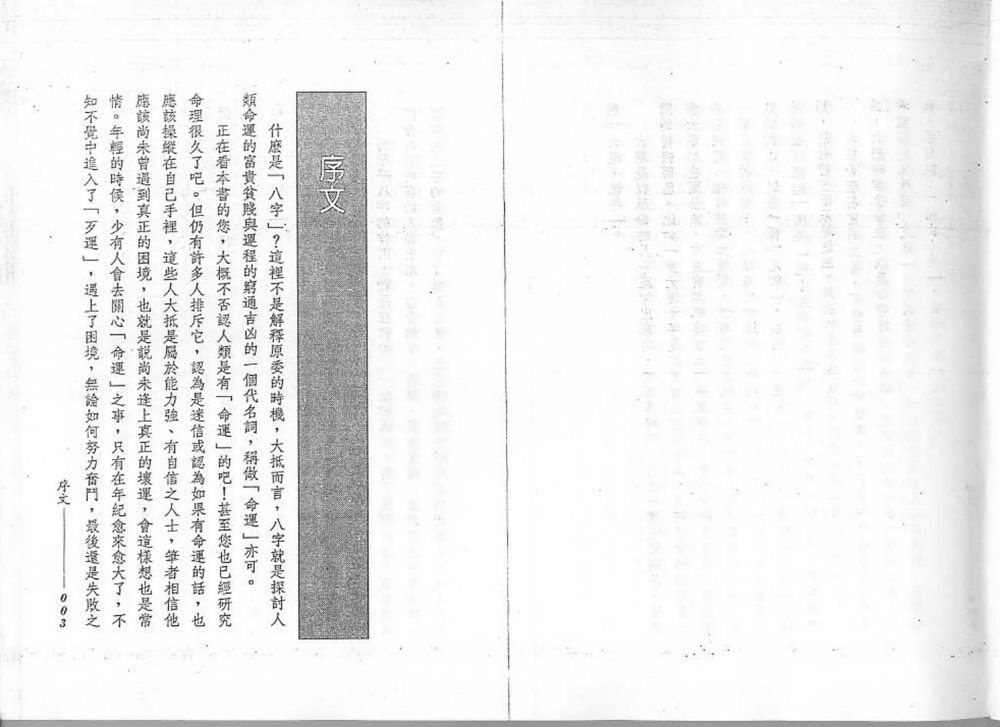 序文
什麼是「八字」？這裡不是解釋原委的時機，大抵而言，八字就是探討人
類命運的富貴貧賤與運程的窮通吉凶的一個代名詞，稱做「命運」亦可。
正在看本書的您，大概不否認人類是有「命運」的吧！甚至您也已經研究
命理很久了吧。但仍有許多人排斥它，認為是迷信或認為如果有命運的話，也
應該操縱在自己手裡，這些人大抵是屬於能力強、有自信之人士，筆者相信他
應該尚未曾遇到真正的困境，也就是說尚未逢上真正的壞運，會這樣想也是常
情。年輕的時候，少有人會去關心「命運」之事，只有在年紀愈來愈大了，不
知不覺中進入了「歹運」，遇上了困境，無論如何努力奮鬥，最後還是失敗之
序文——003